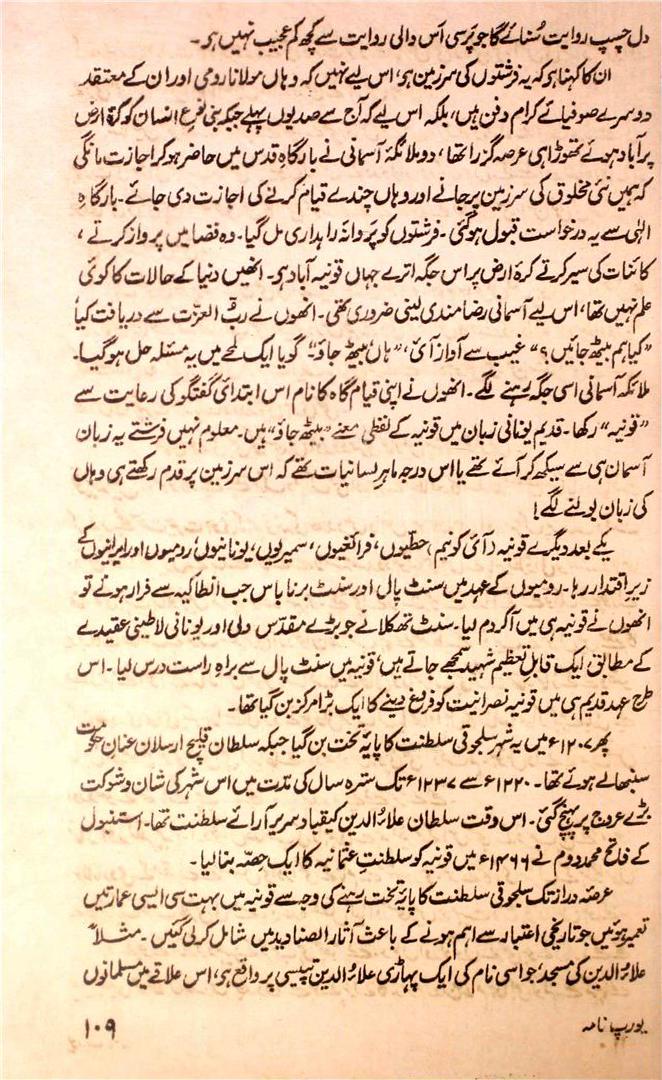 دل حسپ روایت سنائے گا جو پرسی اس والی روایت سے کچھ کم عجیب نہیں ہو۔
ان کا کہنا ہو کہ یہ فرشتوں کی سرزمین ہو، اس لیے نہیں کہ وہاں مولانا رومی اور ان کے معتقد
دوسرے صوفیائے کرام دفن ہیں، بلکہ اس لیے کہ آج سے صدیوں پہلے جبکہ بنی نوع انسان کو کرۂ ارض
پر آباد ہوئے تھوڑا ہی عرصہ گزرا تھا، دو ملائکۂ آسمانی نے بارگاہِ قدس میں حاضر ہو کر اجازت مانگی
کہ ہمیں نئی مخلوق کی سرزمین پر جانے اور وہاں چندے قیام کرنے کی اجازت دی جائے۔ بارگاہِ
الٰہی سے یہ درخواست قبول ہو گئی۔ فرشتوں کو پروانۂ راہداری مل گیا۔ وہ فضا میں پرواز کرتے،
کائنات کی سیر کرتے کرۂ ارض پر اس جگہ اترے جہاں قونیہ آباد ہو۔ انھیں دنیا کے حالات کا کوئی
علم نہیں تھا، اس لیے آسمانی رضامندی لینی ضروری تھی۔ انھوں نے ربّ العزّت سے دریافت کیا،
”کیا ہم بیٹھ جائیں؟“ غیب سے آواز آئی، ”ہاں بیٹھ جاؤ“۔ گویا ایک لمحے میں یہ مسئلہ حل ہو گیا۔
ملائکہ آسمانی اسی جگہ رہنے لگے۔ انھوں نے اپنی قیام گاہ کا نام اس ابتدائی گفتگو کی رعایت سے
”قونیہ“ رکھا۔ قدیم یونانی زبان میں قونیہ کے لفظی معنے ”بیٹھ جاؤ“ ہیں۔ معلوم نہیں فرشتے یہ زبان
آسمان ہی سے سیکھ کر آئے تھے یا اس درجہ ماہرِ لسانیات تھے کہ اس سرزمین پر قدم رکھتے ہی وہاں
کی زبان بولنے لگے!
یکے بعد دیگرے قونیہ (آئی کونیم) حطّیوں، فراعنیوں، سمیریوں، یونانیوں، رومیوں اور ایرانیوں کے
زیرِ اقتدار رہا۔ رومیوں کے عہد میں سنٹ پال اور سنٹ برنا باس جب انطاکیہ سے فرار ہوئے تو
انھوں نے قونیہ ہی میں آکر دم لیا۔ سنٹ تھکلا نے جو بڑے مقدّس ولی اور یونانی لاطینی عقیدے
کے مطابق ایک قابلِ تعظیم شہید سمجھے جاتے ہیں، قونیہ میں سنٹ پال سے براہِ راست درس لیا۔ اس
طرح عہدِ قدیم ہی میں قونیہ نصرانیت کو فروغ دینے کا ایک بڑا مرکز بن گیا تھا۔
پھر ۱۲۰۷ء میں یہ شہر سلجوقی سلطنت کا پایۂ تخت بن گیا جبکہ سلطان قلیج ارسلان عنانِ حکومت
سنبھالے ہوئے تھا۔ ۱۲۲۰ء سے ۱۲۳۷ء تک سترہ سال کی مدّت میں اس شہر کی شان و شوکت
بڑے عروج پر پہنچ گئی۔ اس وقت سلطان علاؤالدین کیقباد سریر آرائے سلطنت تھا۔ استنبول
کے فاتح محمد دوم نے ۱۴۶۶ء میں قونیہ کو سلطنتِ عثمانیہ کا ایک حصّہ بنا لیا۔
عرصۂ دراز تک سلجوقی سلطنت کا پایۂ تخت رہنے کی وجہ سے قونیہ میں بہت سی ایسی عمارتیں
تعمیر ہوئیں جو تاریخی اعتبار سے اہم ہونے کے باعث آثار الصنادید میں شامل کر لی گئیں۔ مثلاً
علاؤالدین کی مسجد، جو اسی نام کی ایک پہاڑی علاؤالدین تپیسی پر واقع ہو، اس علاقے میں مسلمانوں
یورپ نامہ
۱۰۹